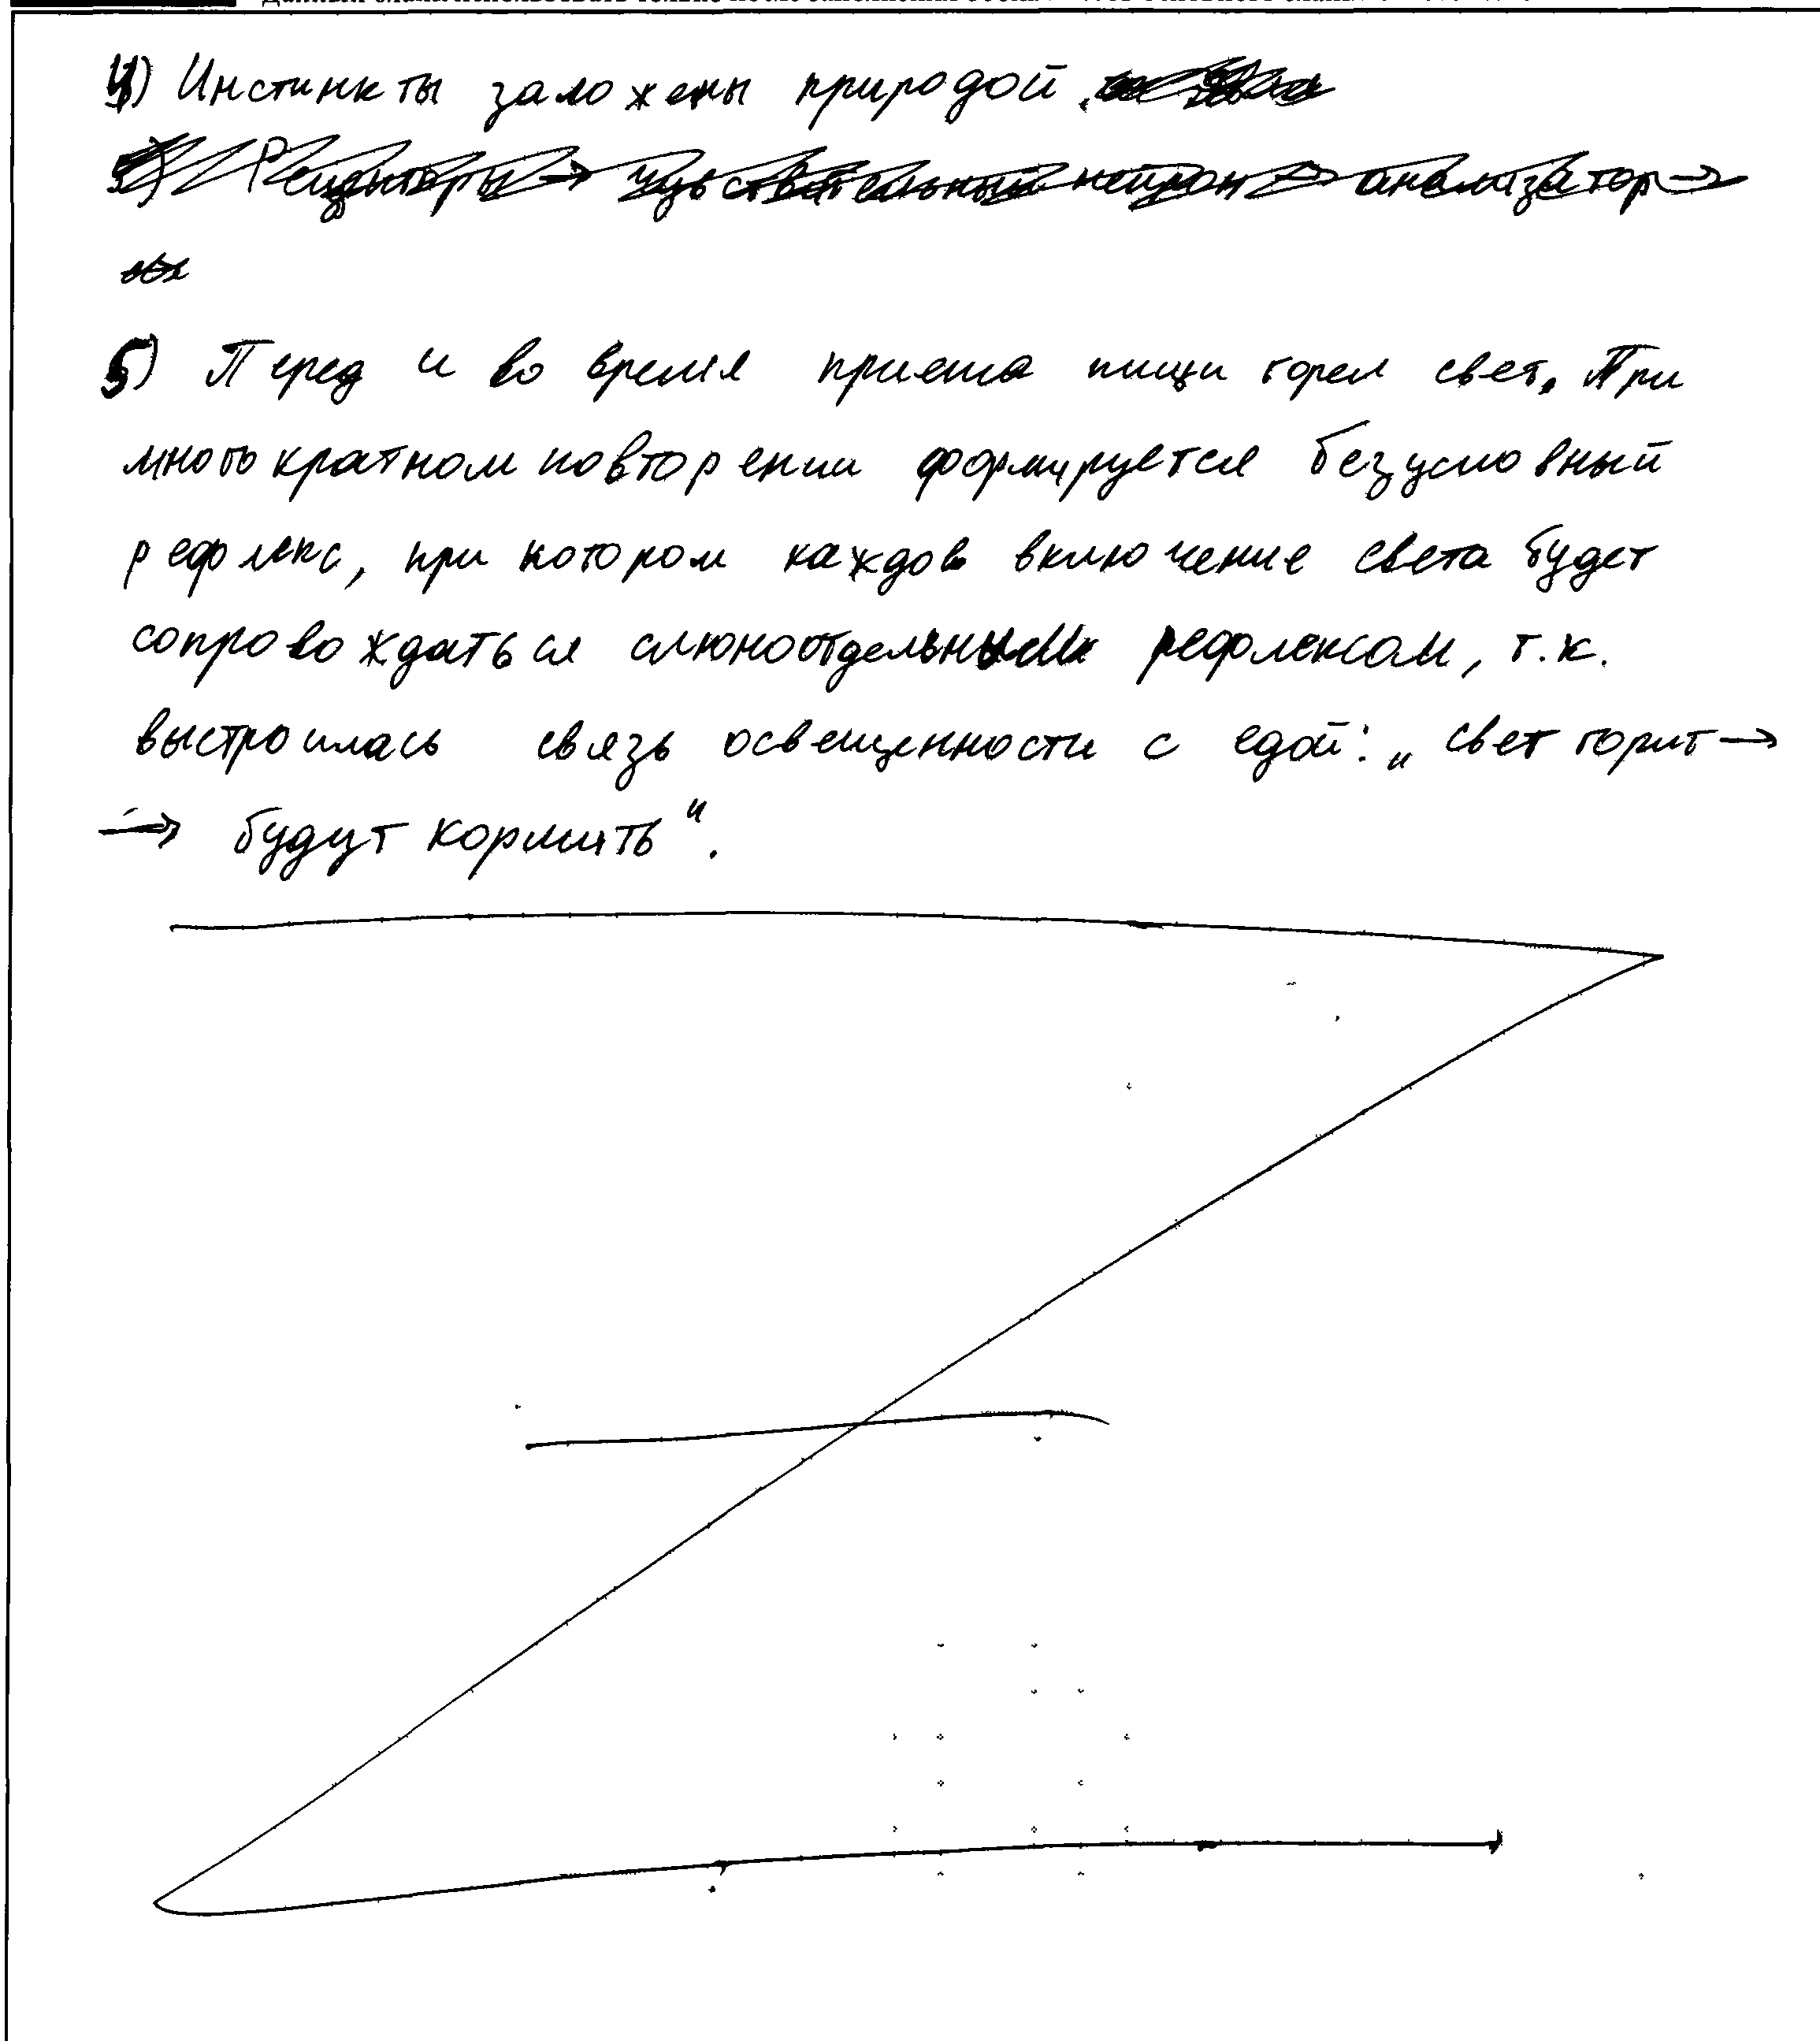 4) Инстинкты заложены природой.
Рецепторы → чувствительный нейрон → анализатор →
5) Перед и во время приема пищи горел свет. При
многократном повторении формируется безусловный
рефлекс, при котором каждое включение света будет
сопровождаться слюноотдельным рефлексом, т.к.
выстроилась связь освещенности с едой: „свет горит →
→ будут кормить“.